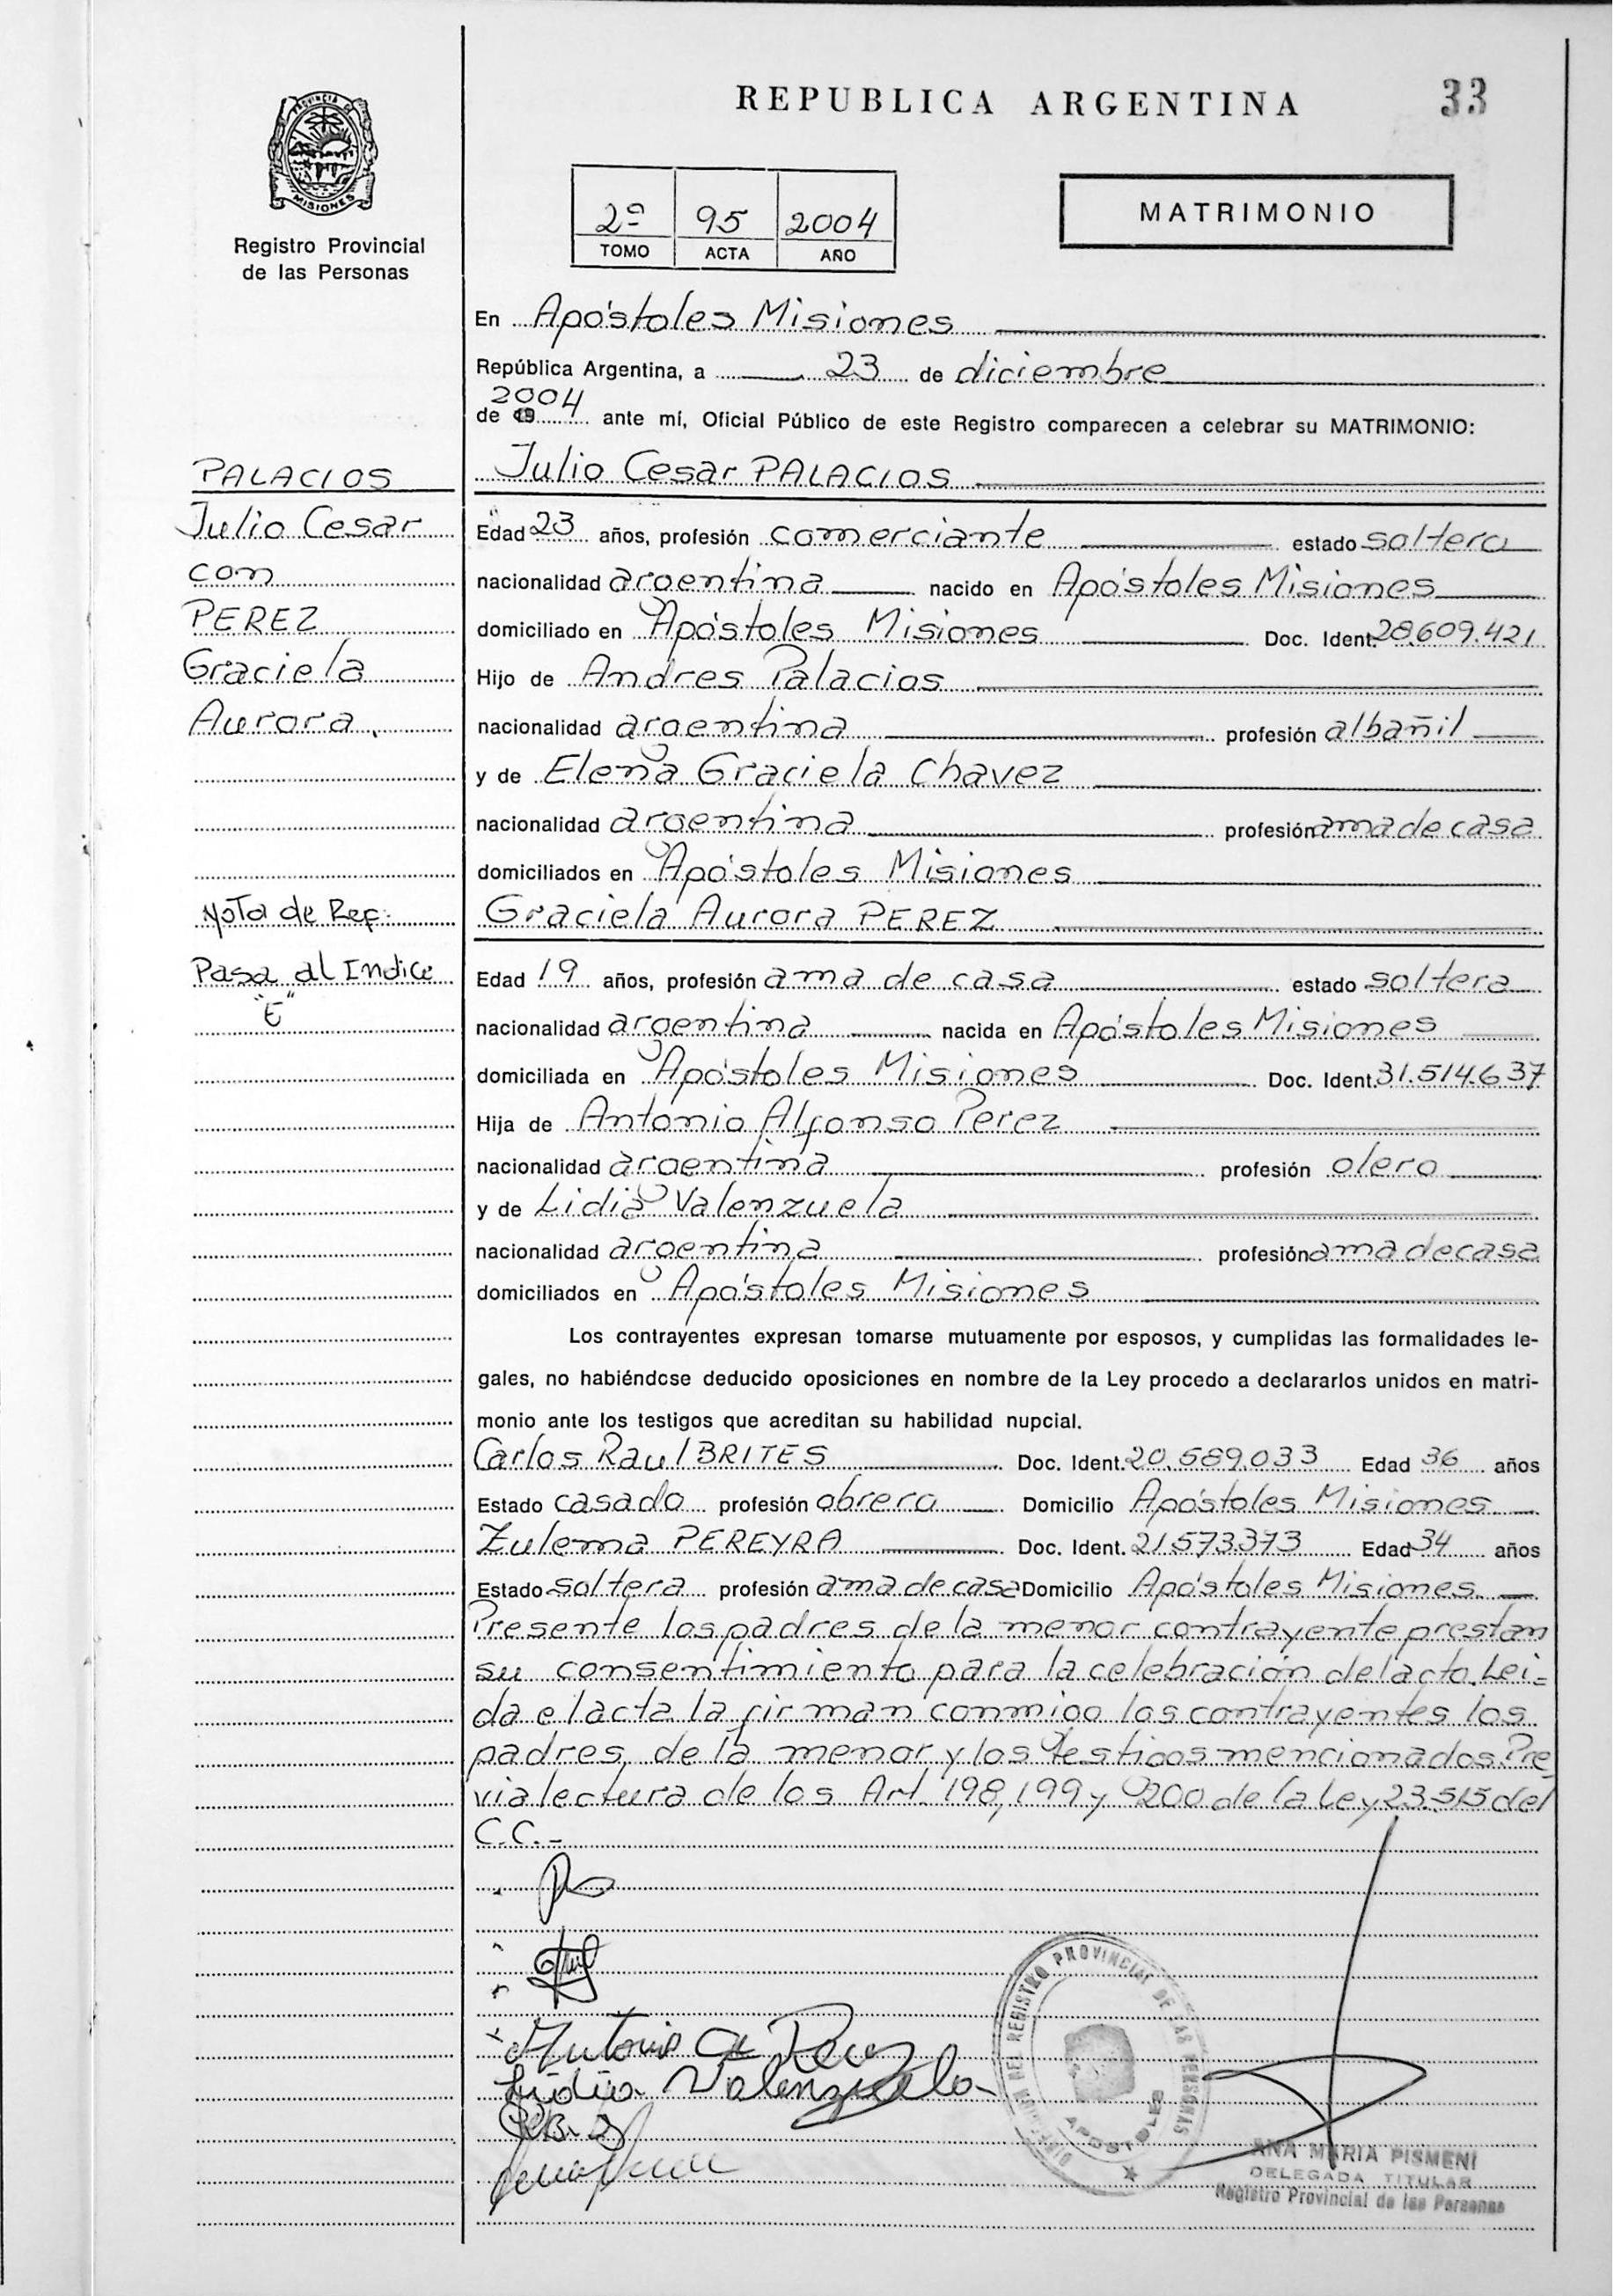 REPUBLICA ARGENTINA
33
PROVINCIA D
MISIONES
Registro Provincial
de las Personas
2º 95 2004
TOMO ACTA AÑO
MATRIMONIO
En Apóstoles Misiones
República Argentina, a 23 de diciembre
2004
de 19 ante mí, Oficial Público de este Registro comparecen a celebrar su MATRIMONIO:
PALACIOS
Julio Cesar
con
PEREZ
Graciela
Aurora.
Nota de Ref:
Pasa al Indice
"E"
Julio Cesar PALACIOS
Edad 23 años, profesión comerciante estado soltero
nacionalidad argentina nacido en Apóstoles Misiones
domiciliado en Apóstoles Misiones Doc. Ident. 28.609.421
Hijo de Andres Palacios
nacionalidad argentina profesión albañil
y de Elena Graciela Chavez
nacionalidad argentina profesión ama de casa
domiciliados en Apóstoles Misiones
Graciela Aurora PEREZ
Edad 19 años, profesión ama de casa estado soltera
nacionalidad argentina nacida en Apóstoles Misiones
domiciliada en Apóstoles Misiones Doc. Ident. 31.514.637
Hija de Antonio Alfonso Perez
nacionalidad argentina profesión olero
y de Lidia Valenzuela
nacionalidad argentina profesión ama de casa
domiciliados en Apóstoles Misiones
Los contrayentes expresan tomarse mutuamente por esposos, y cumplidas las formalidades le-
gales, no habiéndose deducido oposiciones en nombre de la Ley procedo a declararlos unidos en matri-
monio ante los testigos que acreditan su habilidad nupcial.
Carlos Raul BRITES Doc. Ident. 20.589.033 Edad 36 años
Estado casado profesión obrero Domicilio Apóstoles Misiones.
Zulema PEREYRA Doc. Ident. 21.573.373 Edad 34 años
Estado soltera profesión ama de casa Domicilio Apóstoles Misiones.
Presente los padres de la menor contrayente prestan
su consentimiento para la celebración del acto. Lei=
da el acta la firman conmigo los contrayentes los
padres de la menor y los testigos mencionados. Pre
via lectura de los Art. 198, 199 y 200 de la Ley 23.515 del
C.C.-
Antonio A Perez
Lidia Valenzuela
DEL REGISTRO PROVINCIAL DE LAS PERSONAS
APOSTOLES
ANA MARIA PISMENI
DELEGADA TITULAR
Registro Provincial de las Personas